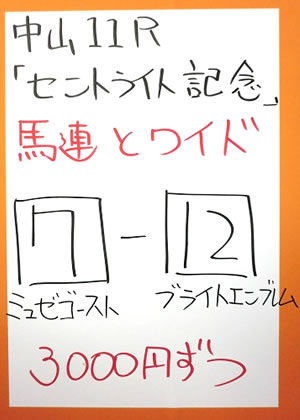 中山11R
「セントライト記念」
馬連とワイド
7-12
ミュゼゴースト ブライトエンブレム
3000円ずつ